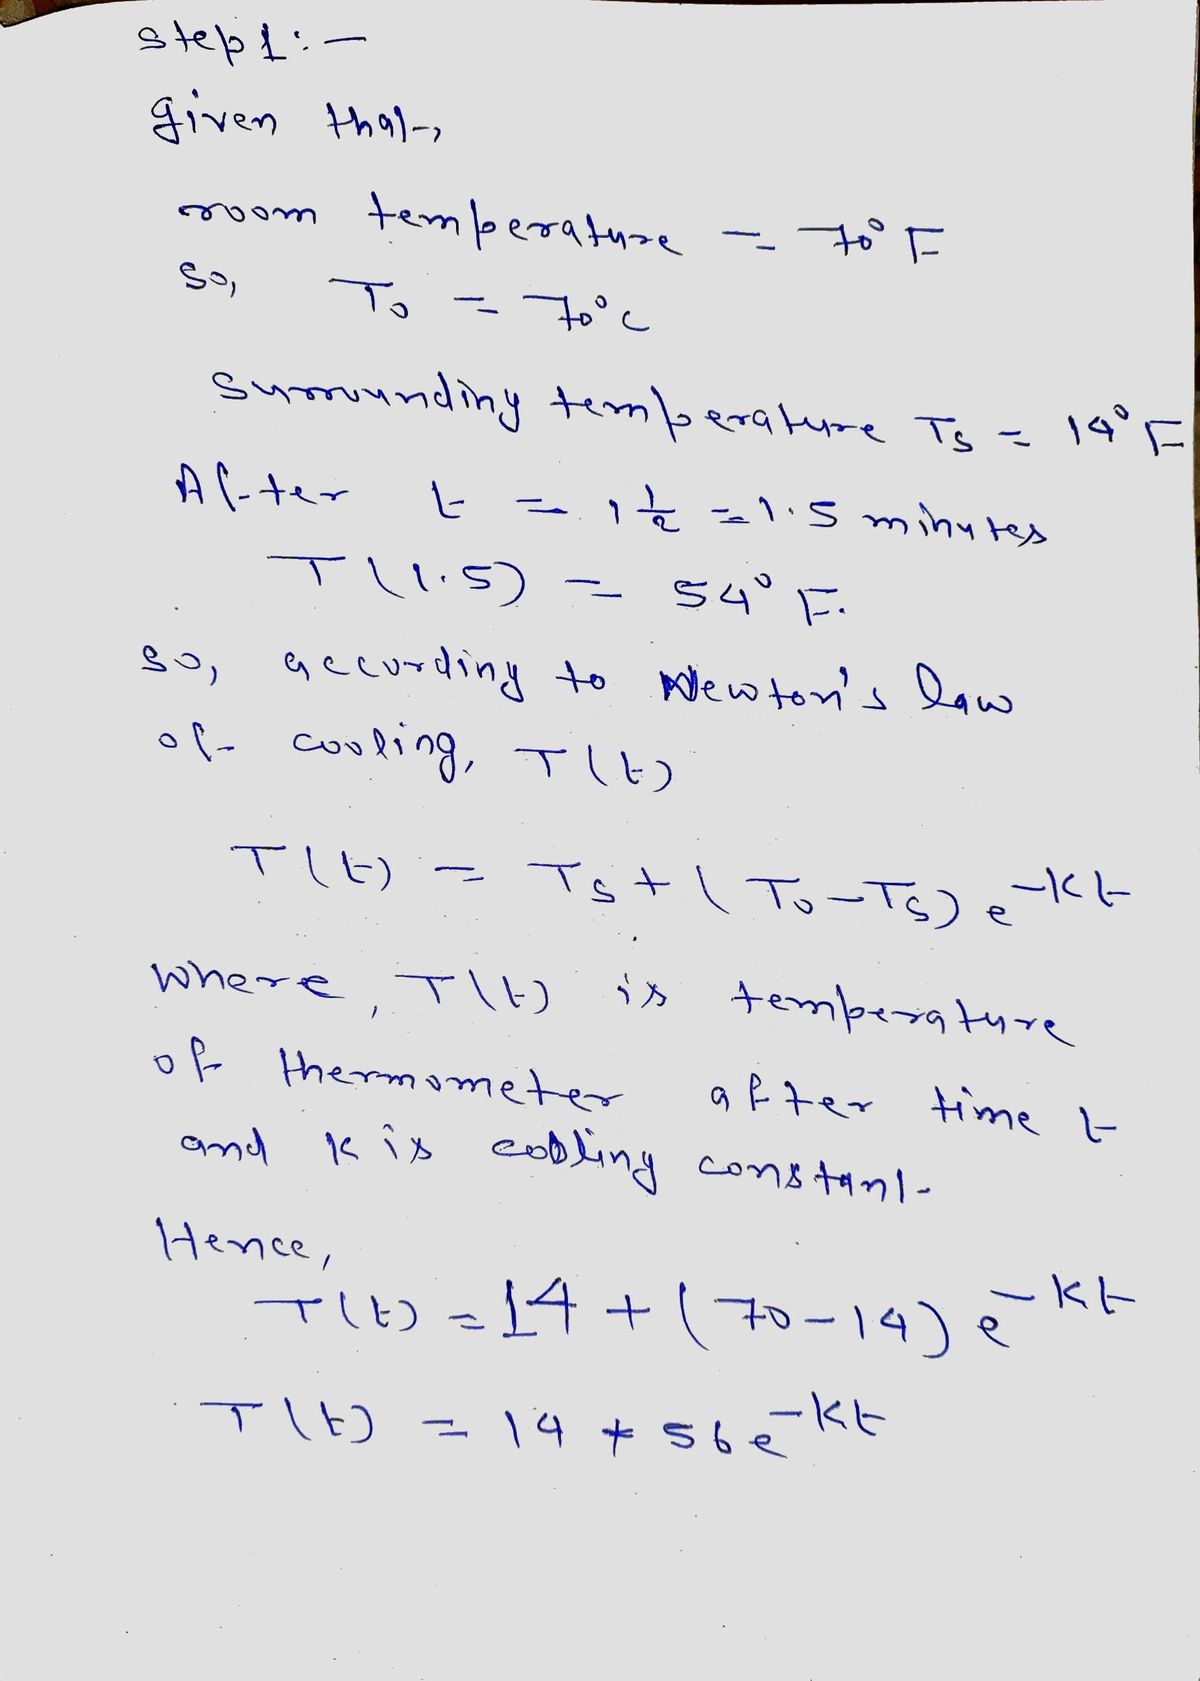 step 1:-
given that,
room temperature = 70° F
so, T₀ = 70°C
Surrounding temperature Ts = 14° F
After t = 1 1/2 = 1.5 minutes
T(1.5) = 54° F.
so, according to Newton's law
of cooling, T(t)
T(t) = Ts + (T₀-Ts) e^-kt
where, T(t) is temperature
of thermometer after time t
and k is cooling constant
Hence,
T(t) = 14 + (70-14) e^-kt
T(t) = 14 + 56 e^-kt